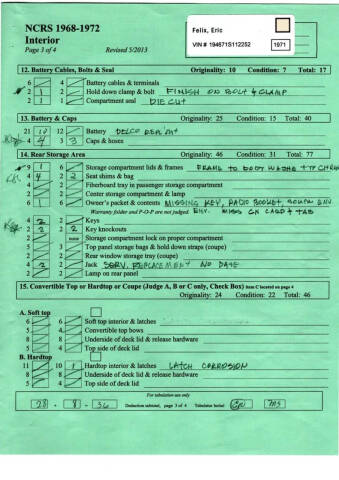 NCRS 1968-1972
Interior
Page 3 of 4 Revised 5/2013
Felix, Eric
VIN # 194671S112252 1971
12. Battery Cables, Bolts & Seal Originality: 10 Condition: 7 Total: 17
6 4 Battery cables & terminals
2 1 2 1 Hold down clamp & bolt FINISH ON BOLT & CLAMP
1 1 Compartment seal DIE CUT
13. Battery & Caps Originality: 25 Condition: 15 Total: 40
21 10 12 Battery DELCO REPL'MT
4 4 3 3 Caps & hoses
14. Rear Storage Area Originality: 46 Condition: 31 Total: 77
9 1 6 Storage compartment lids & frames FRAME TO BODY
4 4 2 2 Seat shims & bag
4 2 Fiberboard tray in passenger storage compartment
4 2 Center storage compartment & lamp
6 1 6 Owner's packet & contents MISSING KEY, RADIO BOOKLET, ENV.
Warranty folder and P-O-P are not judged ENV. MISS ON CARD & TAB
4 2 2 Keys
2 2 2 2 Key knockouts
2 none Storage compartment lock on proper compartment
5 3 Top panel storage bags & hold down straps (coupe)
2 2 Rear window storage tray (coupe)
4 2 2 Jack SERV. REPLACEMENT NO DATE
2 2 Lamp on rear panel
15. Convertible Top or Hardtop or Coupe (Judge A, B or C only, Check Box) Item C located on page 4
Originality: 24 Condition: 22 Total: 46
A. Soft top
6 6 Soft top interior & latches
5 4 Convertible top bows
8 8 Underside of deck lid & release hardware
5 4 Top side of deck lid
B. Hardtop
11 10 1 Hardtop interior & latches LATCH CORROSION
8 8 Underside of deck lid & release hardware
5 4 Top side of deck lid
For tabulation use only
28 - 8 - 36 Deduction subtotal, page 3 of 4 Tabulator Initial